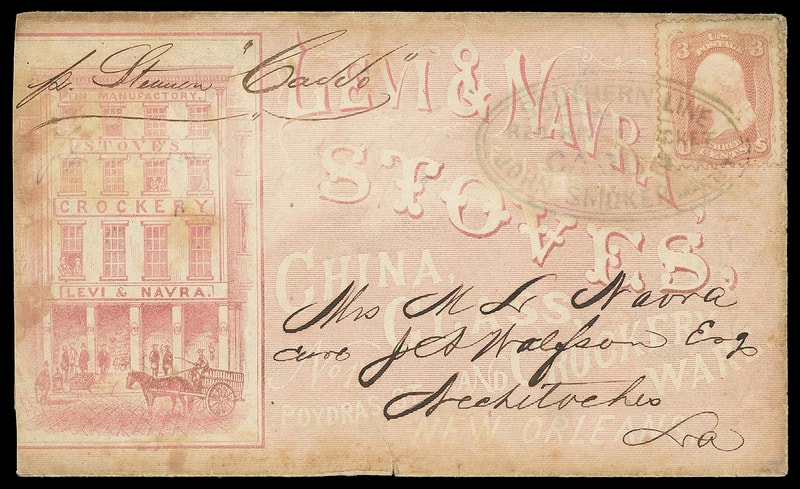 pr. Steamer "Caddo"
TIN MANUFACTORY.
STOVES
CROCKERY
LEVI & NAVRA.
LEVI & NAVRA
STOVES,
CHINA,
GLASS
AND CROCKERY
WARE
POYDRAS ST
NEW ORLEANS
3 U.S. POSTAGE 3
CENTS
LINE
JOHN SMOKER
Mrs M L Navra
care J A Wolfson Esq
Nechitoches
La